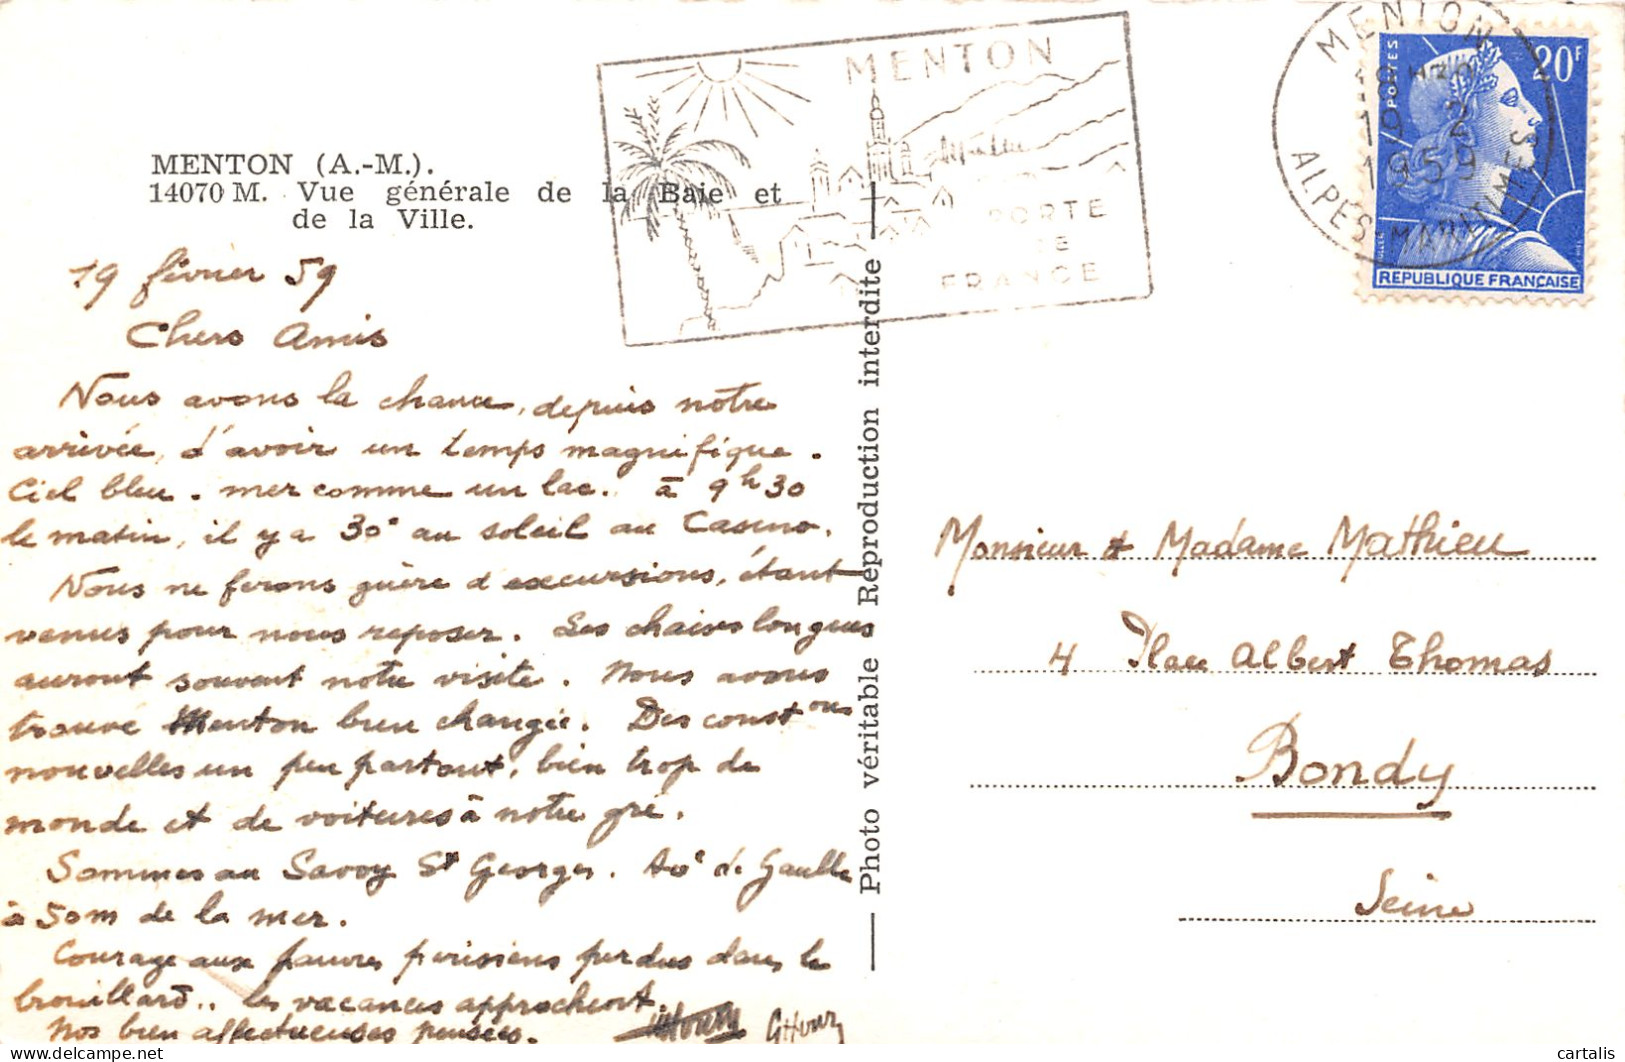 MENTON (A.-M.).
14070 M. Vue générale de la Baie et
de la Ville.
MENTON
PORTE
DE
FRANCE
MENTON
18 H30
19 - 2
1959
ALPES-MARITIMES
POSTES
20F
REPUBLIQUE FRANÇAISE
19 février 59
Chers Amis
Nous avons la chance, depuis notre
arrivée, d'avoir un temps magnifique.
Ciel bleu. mer comme un lac. à 9h30
le matin, il y a 30° au soleil au Casino.
Nous ne ferons guère d'excursions, étant
venus pour nous reposer. Les chaises longues
auront souvent notre visite. Nous avons
trouvé Menton bien changée. Des constons
nouvelles un peu partout, bien trop de
monde et de voitures à notre gré.
Sommes au Savoy St Georges. Ave de Gaulle
à 50m de la mer.
Courage aux pauvres parisiens perdus dans le
brouillard.. les vacances approchent.
Nos bien affectueuses pensées.
Photo véritable Reproduction interdite
Monsieur & Madame Mathieu
4 Place Albert Thomas
Bondy
Seine
cartalis